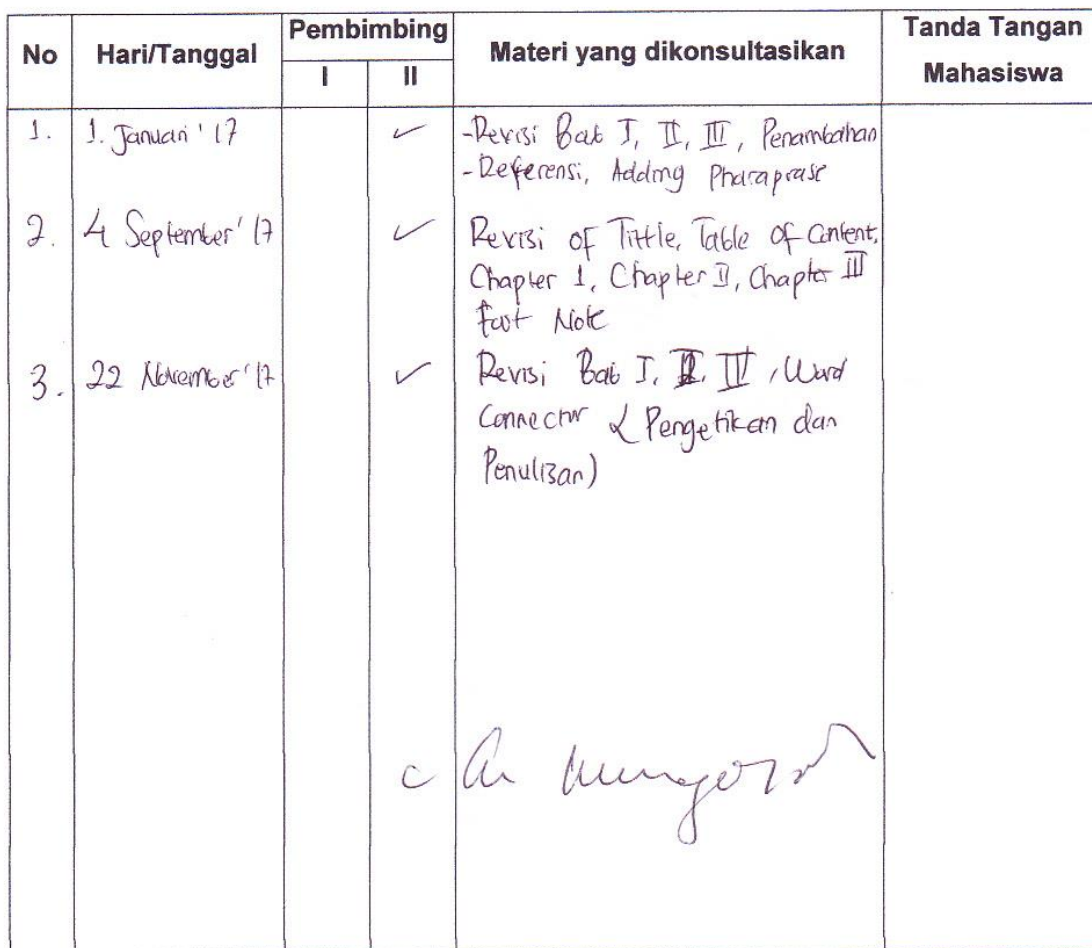 No Hari/Tanggal Pembimbing Materi yang dikonsultasikan Tanda Tangan Mahasiswa
I II
1. 1. Januari '17 ✓ -Revisi Bab I, II, III, Penambahan
-Referensi, Adding Pharaprase
2. 4 September '17 ✓ Revisi of Tittle, Table of Content,
Chapter 1, Chapter II, Chapter III
foot Note
3. 22 November '17 ✓ Revisi Bab I, II, IV, Word
Connector (Pengetikan dan
Penulisan)